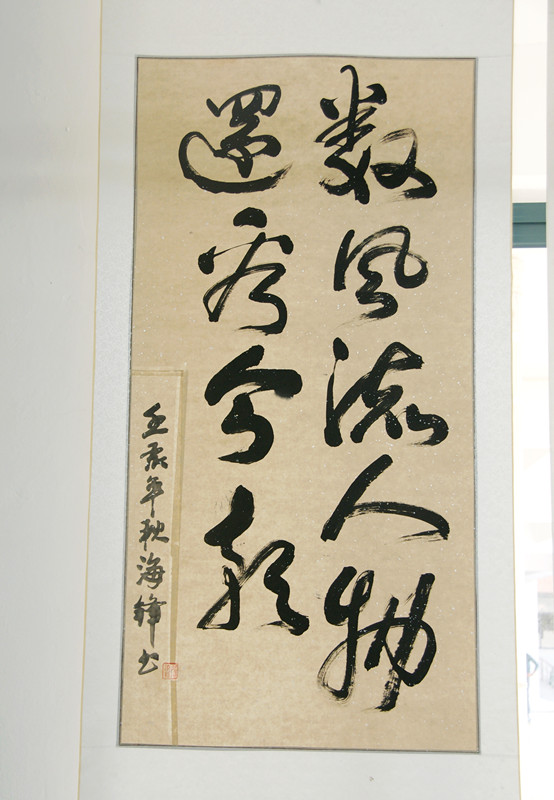 数风流人物
還看今朝
壬辰年秋海鋒书